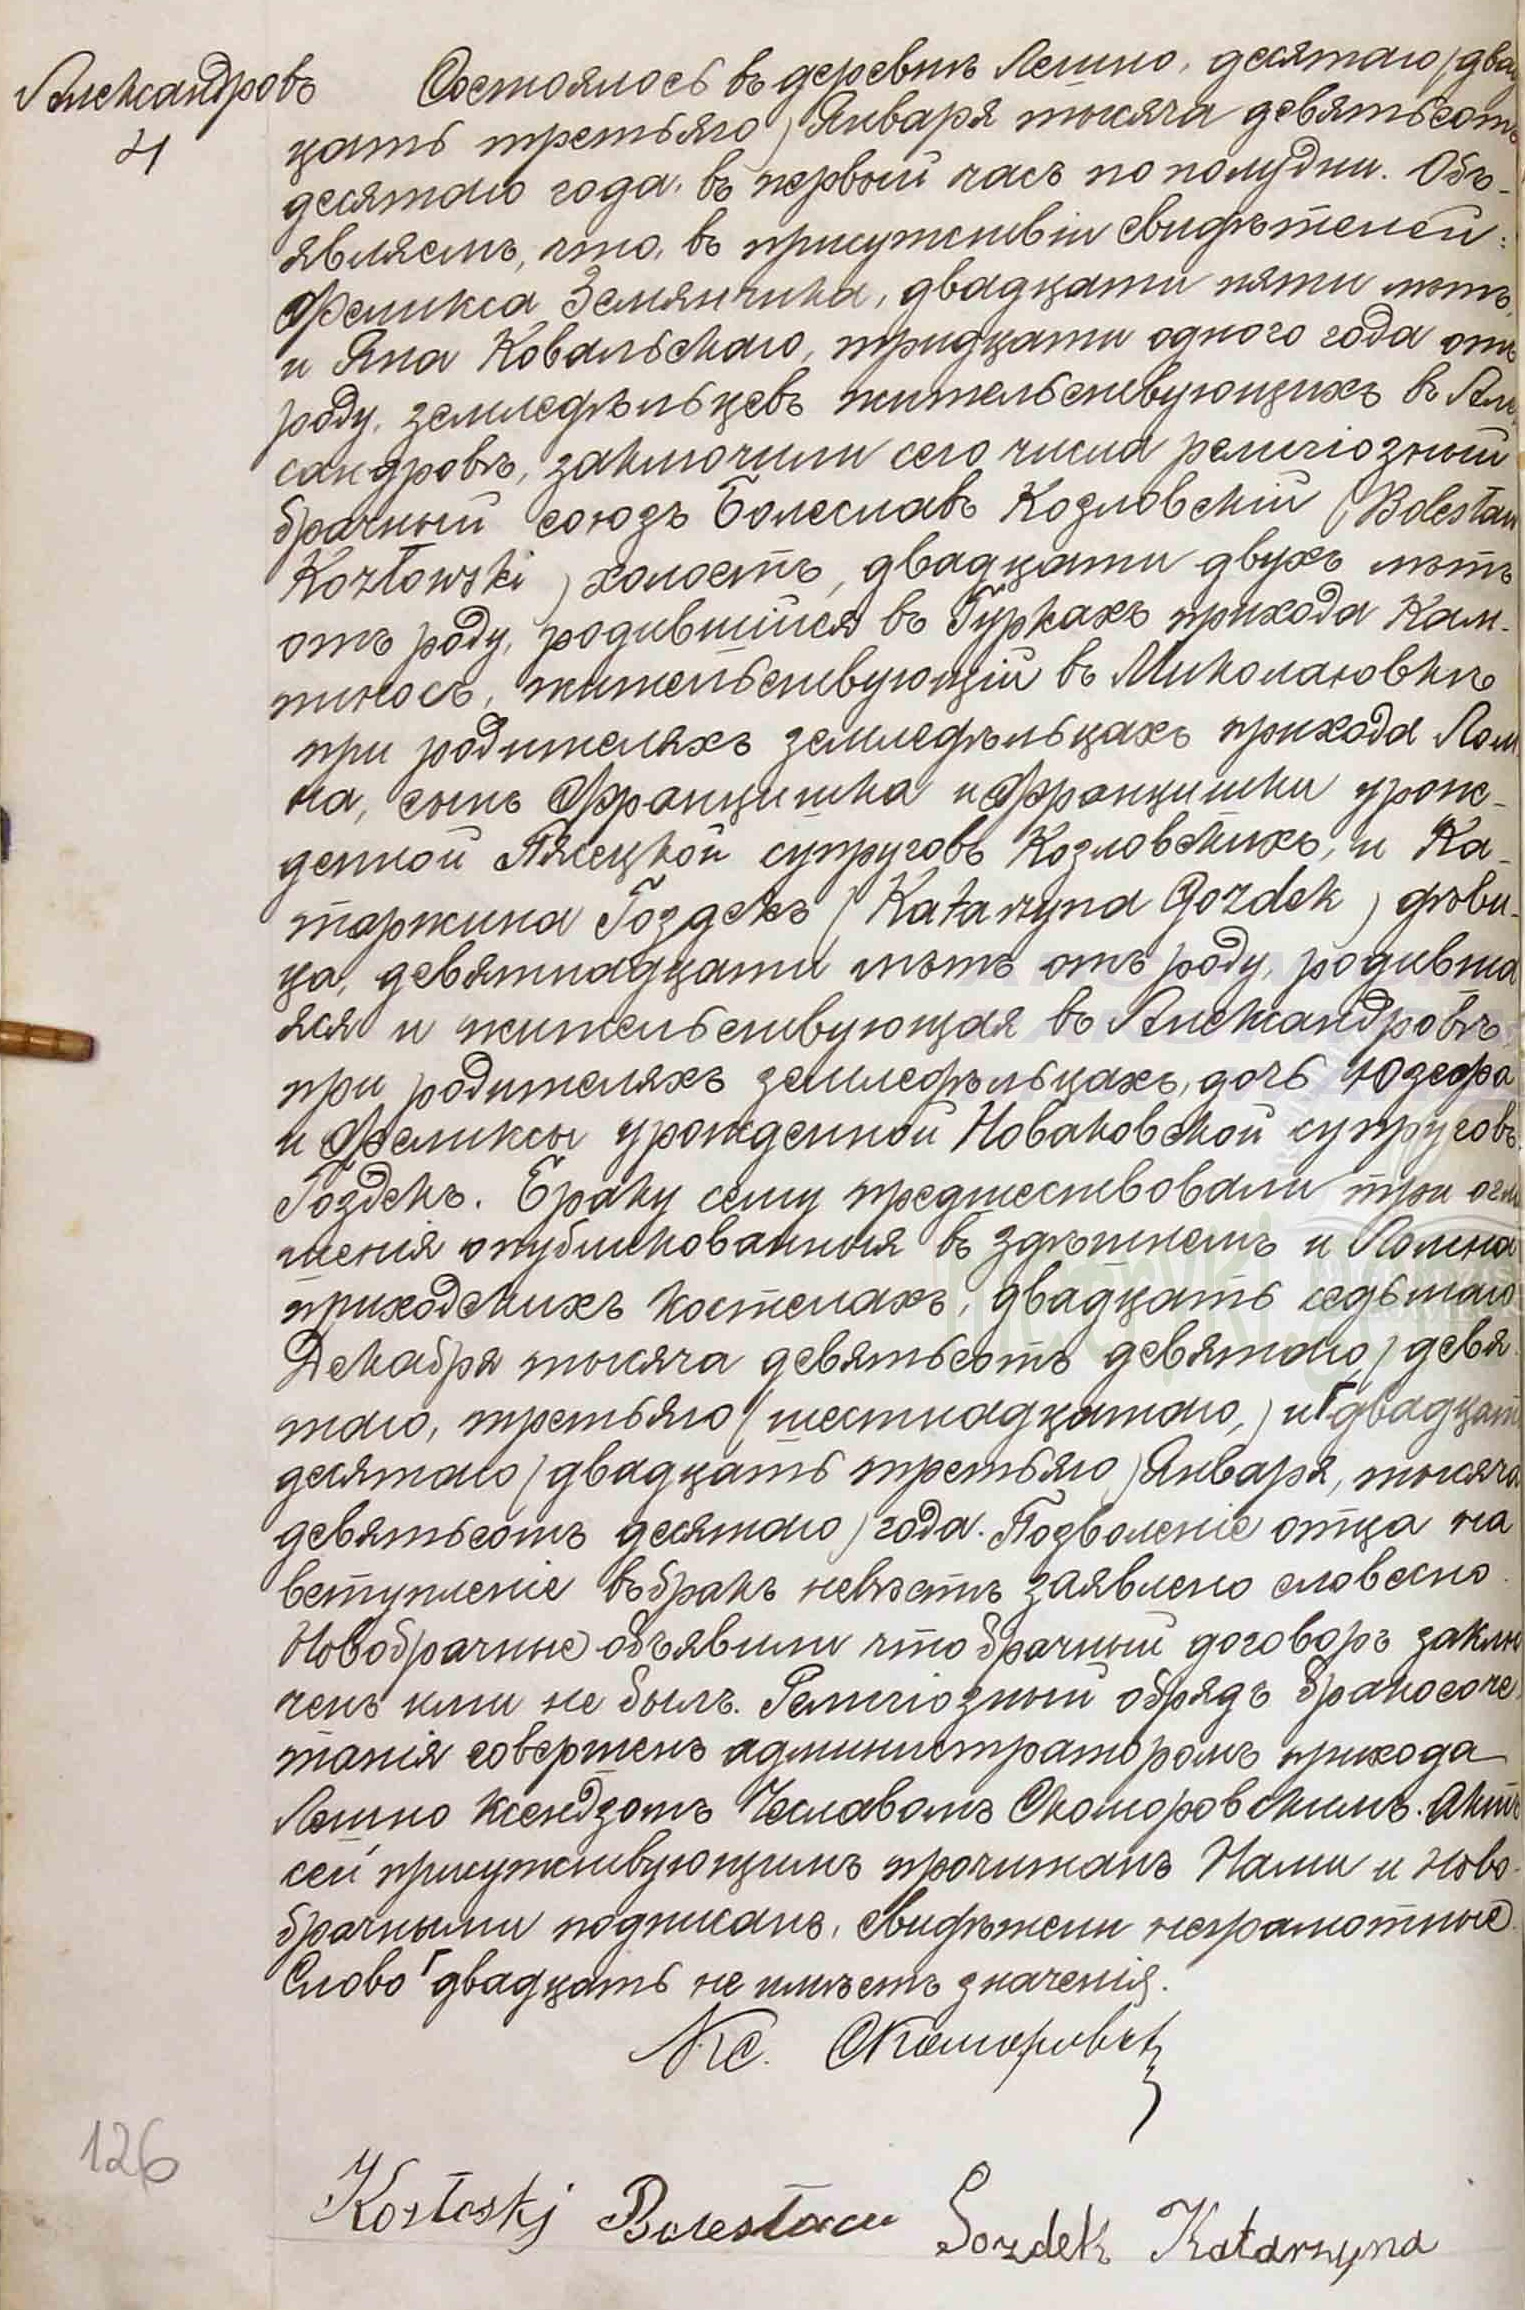 Александровъ
4
Состоялось въ деревнѣ Лешно, десятаго (два
цать третьяго) Января тысяча девятьсотъ
десятаго года, въ первый часъ по полудни. Объ-
являемъ, что, въ присутствіи свидѣтелей:
Феликса Землянчика, двадцати пяти лѣтъ,
и Яна Ковальскаго, тридцати одного года отъ
роду, земледѣльцевъ жительствующихъ въ Алек
сандровѣ, заключили сего числа религіозный
брачный союзъ Болеславъ Козловскій (Bolesław
Kozłowski) холостъ, двадцати двухъ лѣтъ
отъ роду, родившійся въ Гуркахъ прихода Кам-
пиносъ, жительствующій въ Миколаювкѣ
при родителяхъ земледѣльцахъ прихода Лом
на, сынъ Францишка и Францишки урож-
денной Пясецкой супруговъ Козловскихъ, и Ка-
таржина Гоздекъ (Katarzyna Gozdek) дѣви-
ца, девятнадцати лѣтъ отъ роду, родивша
яся и жительствующая въ Александровѣ
при родителяхъ земледѣльцахъ, дочь Юзефа
и Феликсы урожденной Новаковской супруговъ
Гоздекъ. Браку сему предшествовали три огла
шенія опубликованныя въ здѣшнемъ и Ломна
приходскихъ костелахъ, двадцать седьмаго
Декабря тысяча девятьсотъ девятаго, (девя
таго, третьяго (шестнадцатаго,) и ⸢двадцать
десятаго (двадцать третьяго) Января, тысяча
девятьсотъ десятаго) года. Позволеніе отца на
вступленіе въ бракъ невѣстѣ заявлено словесно.
Новобрачные объявили что брачный договоръ заклю
ченъ ими не былъ. Религіозный обрядъ бракосоче
танія совершенъ администраторомъ прихода
Лешно Ксендзомъ Чеславомъ Скоморовскимъ. Актъ
сей присутствующимъ прочитанъ Нами и Ново-
брачными подписанъ, свидѣтели неграмотные.
Слово ⸢двадцать не имѣетъ значенія.
Кс. Скоморовск
126
Kozłoskj Bolesław Gozdek Katarzyna